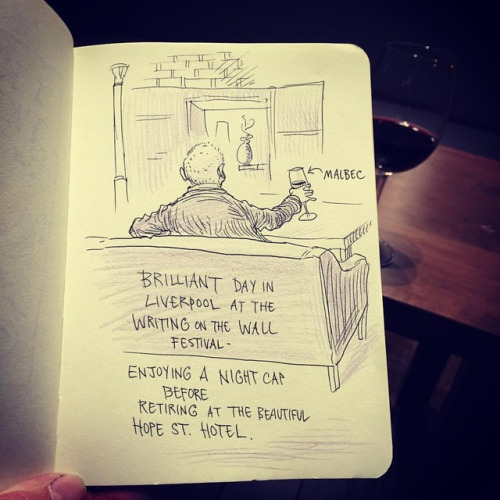 MALBEC
BRILLIANT DAY IN
LIVERPOOL AT THE
WRITING ON THE WALL
FESTIVAL-
ENJOYING A NIGHT CAP
BEFORE
RETIRING AT THE BEAUTIFUL
HOPE ST. HOTEL.